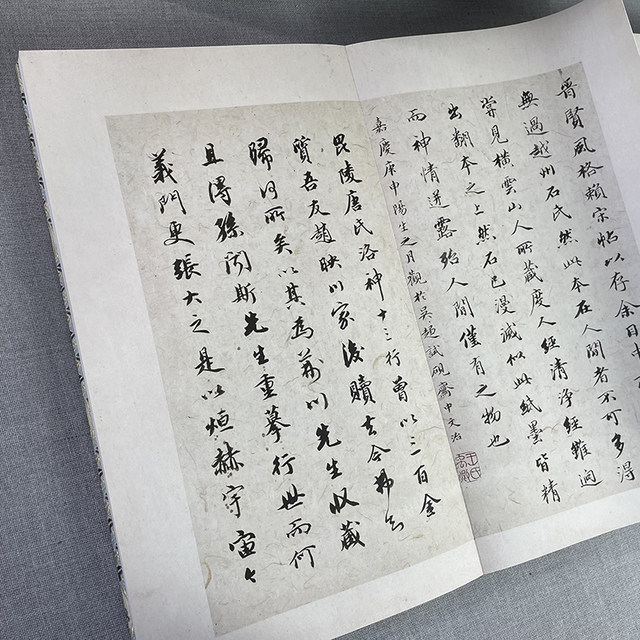 晉賢風格賴宋帖以存余目
無過越州石氏然此本在人間者不可多得
嘗見橫雲山人所藏度人經清淨經雖迥
出翻本之上然石已漫滅似此紙墨皆精
而神情迸露殆人間僅有之物也
嘉慶庚申陽生之月觀於吳趨試硯齋中文治
毘陵唐氏洛神十三行曾以三百金
質吾友趙映川家後贖去今弗知
歸何所矣以其為荊川先生收藏
且得孫聞斯先生重摹行世而何
義門更張大之是以烜赫宇宙々